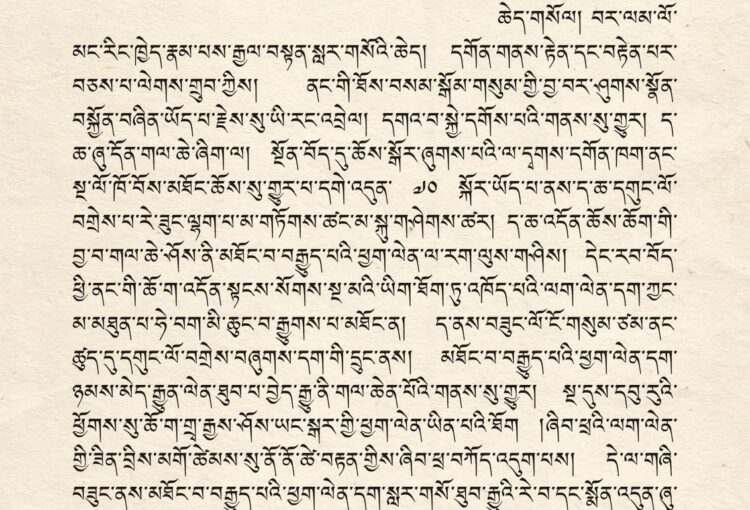 ཆེད་གསོལ། བར་ལམ་ལོ་
མང་རིང་ཁྱེད་རྣམ་པས་རྒྱལ་བསྟན་སླར་གསོའི་ཆེད། དགོན་གནས་རྟེན་དང་བརྟེན་པར་
བཅས་པ་ལེགས་གྲུབ་ཀྱིས། ནང་གི་ཐོས་བསམ་སྒོམ་གསུམ་གྱི་བྱ་བར་ཤུགས་སྣོན་
བསྐྱོན་བཞིན་ཡོད་པ་རྗེས་སུ་ཡི་རང་འབྲེལ། དགའ་བ་སྐྱེ་དགོས་པའི་གནས་སུ་གྱུར། ད་
ཆ་ཞུ་དོན་གལ་ཆེ་ཞིག་ལ། སྔོན་བོད་དུ་ཆོས་སྒོར་ཞུགས་པའི་ལ་དྭགས་དགོན་ཁག་ནང་
སྔ་ལོ་ཁོ་བོས་མཐོང་ཆོས་སུ་གྱུར་པ་དགེ་འདུན་ ༧༠ སྐོར་ཡོད་པ་ནས་ད་ཆ་དགུང་ལོ་
བགྲེས་པ་རེ་ཟུང་ལྷག་པ་མ་གཏོགས་ཚང་མ་སྐུ་གཤེགས་ཚར། ད་ཆ་འདོན་ཆོས་ཆོག་གི་
བྱ་བ་གལ་ཆེ་ཤོས་ནི་མཐོང་བ་བརྒྱུད་པའི་ཕྱག་ལེན་ལ་རག་ལུས་གཤིས། དེང་རབ་བོད་
ཕྱི་ནང་གི་ཆོ་ག་འདོན་སྟངས་སོགས་སྔ་མའི་ཡིག་ཐོག་ཏུ་འཁོད་པའི་ལག་ལེན་དག་ཀྱང་
མ་མཐུན་པ་ཧེ་བག་མི་ཆུང་བ་རྒྱུགས་པ་མཐོང་ན། ད་ནས་བཟུང་ལོ་ངོ་གསུམ་ཙམ་ནང་
ཚུད་དུ་དགུང་ལོ་བགྲེས་བཞུགས་དག་གི་དྲུང་ནས། མཐོང་བ་བརྒྱུད་པའི་ཕྱག་ལེན་དག་
ཉམས་མེད་རྒྱུན་ལེན་ཐུབ་པ་བྱེད་རྒྱུ་ནི་གལ་ཆེན་པོའི་གནས་སུ་གྱུར། སྔ་དུས་དབུ་རུའི་
ཕྱོགས་སུ་ཆོ་ག་གྲྭ་རྒྱས་ཤོས་ཡང་སྒར་གྱི་ཕྱག་ལེན་ཡིན་པའི་ཐོག །ཞིབ་ཕྲའི་ལག་ལེན་
གྱི་ཟིན་བྲིས་མགོ་ཚེམས་སུ་ནོ་ནོ་ཚེ་བརྟན་གྱིས་ཞིབ་ཕྲ་བཀོད་འདུག་པས། དེ་ལ་གཞི་
བཟུང་ནས་མཐོང་བ་བརྒྱུད་པའི་ཕྱག་ལེན་དག་སླར་གསོ་ཐུབ་རྒྱུའི་རེ་བ་དང་སྨོན་འདུན་ཞུ་